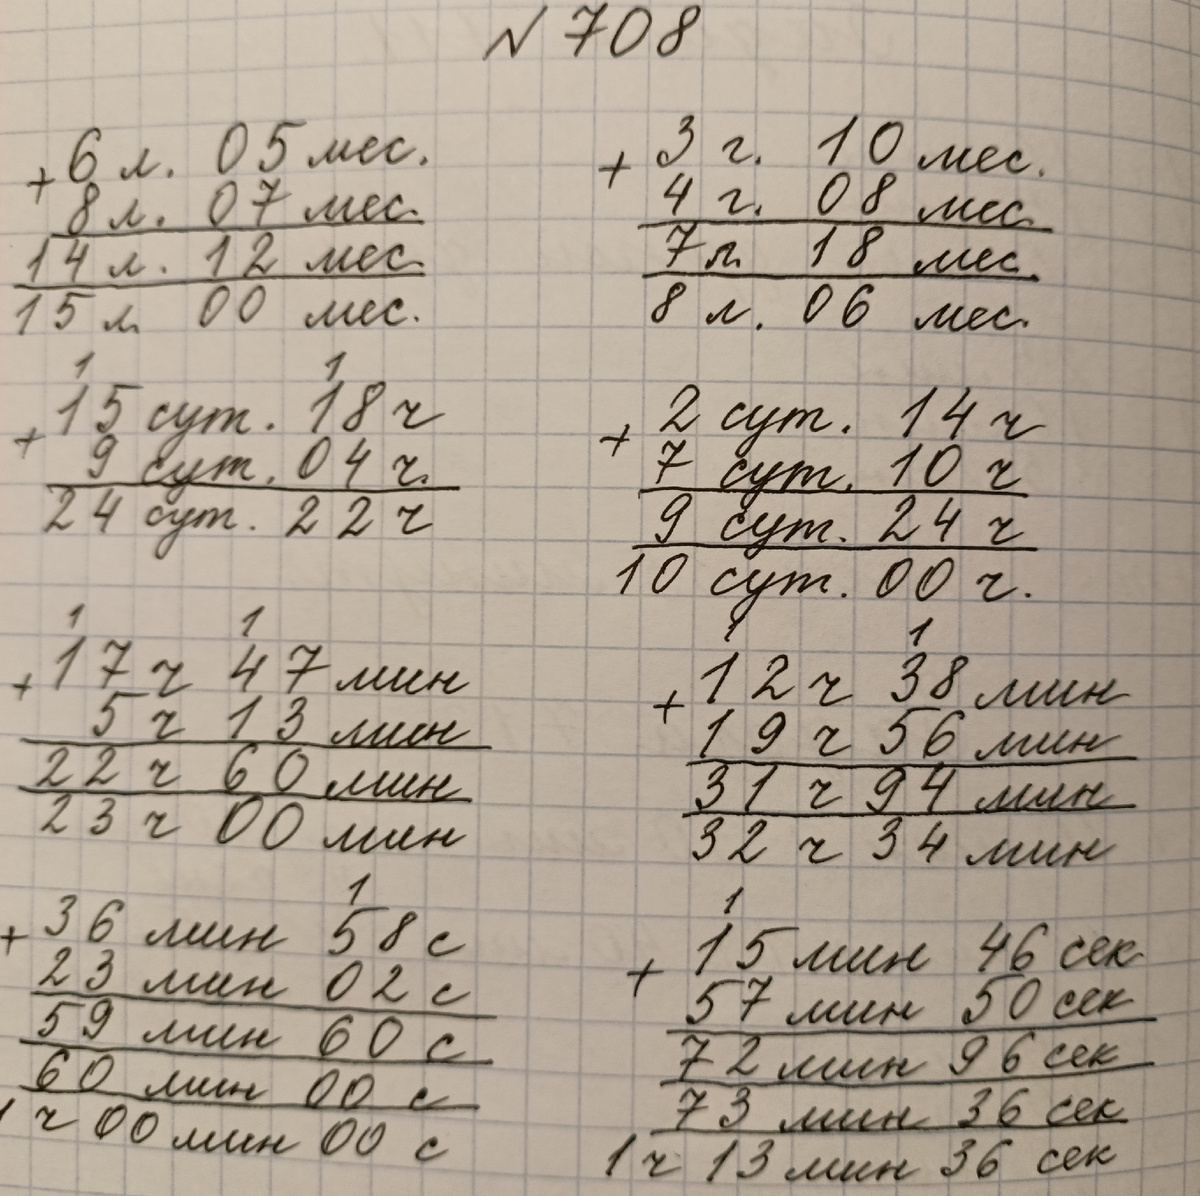 №708
+ 6 л. 05 мес.
8 л. 07 мес.
14 л. 12 мес.
15 л. 00 мес.
+ 3 г. 10 мес.
4 г. 08 мес.
7 л. 18 мес.
8 л. 06 мес.
1 1
+ 15 сут. 18 ч
9 сут. 04 ч.
24 сут. 22 ч
+ 2 сут. 14 ч
7 сут. 10 ч
9 сут. 24 ч
10 сут. 00 ч.
1 1
+ 17 ч 47 мин
5 ч 13 мин
22 ч 60 мин
23 ч 00 мин
1 1
+ 12 ч 38 мин
19 ч 56 мин
31 ч 94 мин
32 ч 34 мин
1
+ 36 мин 58 с
23 мин 02 с
59 мин 60 с
60 мин 00 с
1 ч 00 мин 00 с
1
+ 15 мин 46 сек
57 мин 50 сек
72 мин 96 сек
73 мин 36 сек
1 ч 13 мин 36 сек